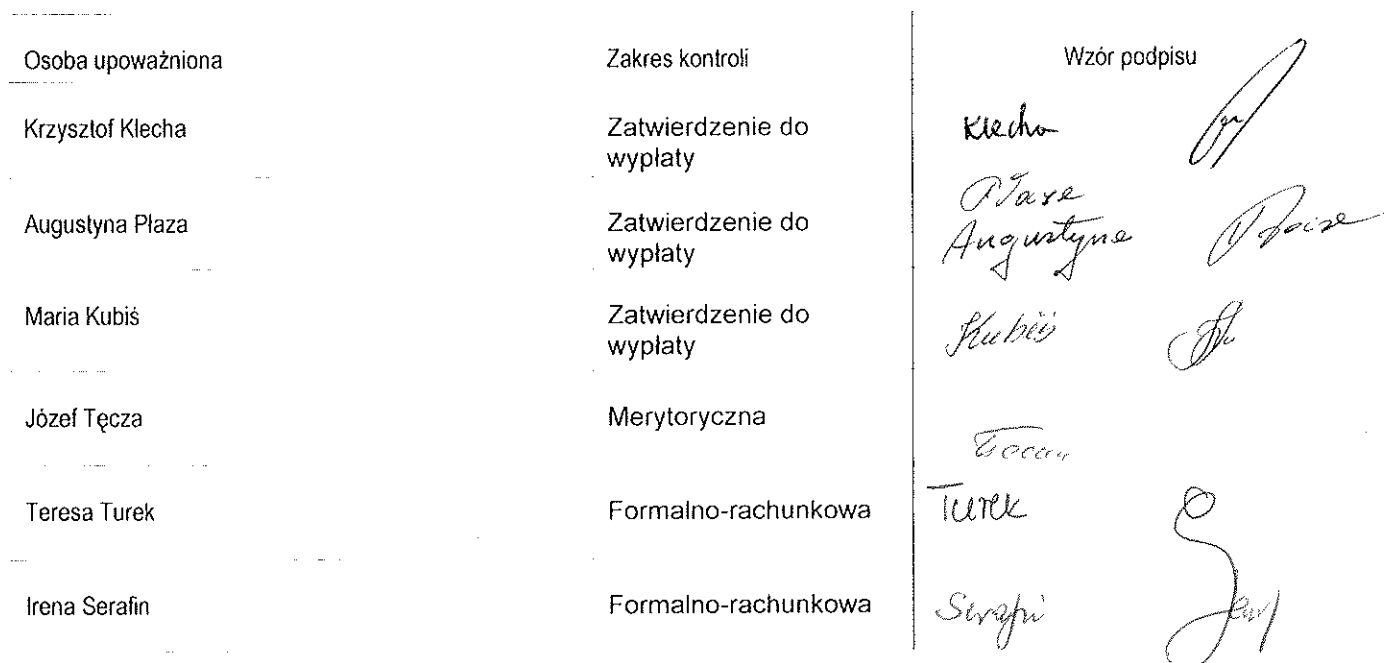 Osoba upoważniona Zakres kontroli Wzór podpisu
Krzysztof Klecha Zatwierdzenie do wypłaty Klecha
Augustyna Płaza Zatwierdzenie do wypłaty Płaza Augustyna Płaza
Maria Kubiś Zatwierdzenie do wypłaty Kubiś
Józef Tęcza Merytoryczna
Teresa Turek Formalno-rachunkowa Turek
Irena Serafin Formalno-rachunkowa Serafin